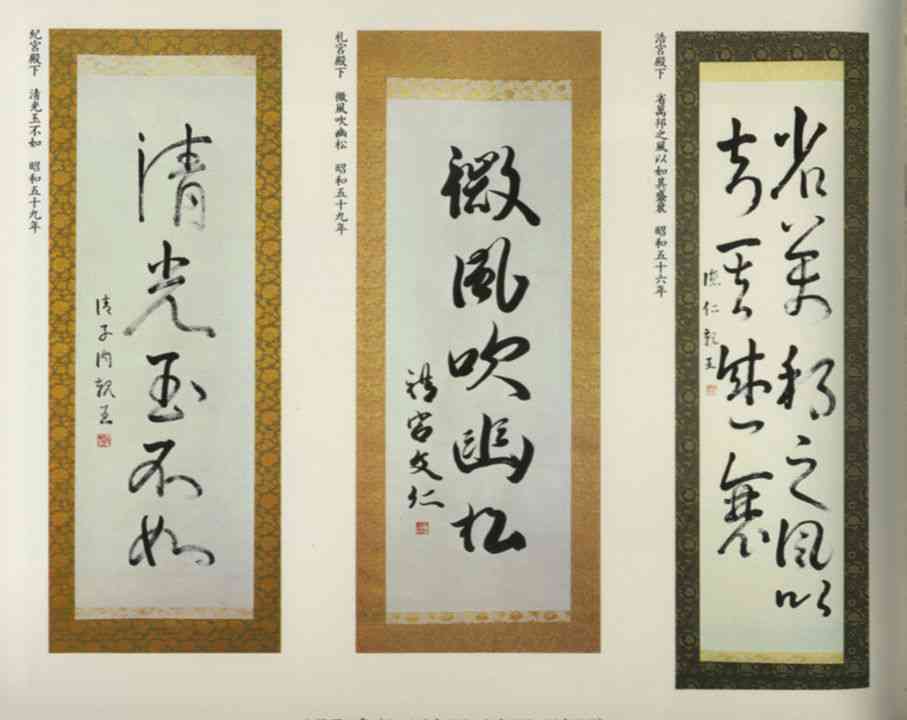 省萬邦之風以
知其盛衰
徳仁親王
浩宮殿下　省萬邦之風以如其盛衰　昭和五十六年
微風吹幽松
禮宮文仁
礼宮殿下　微風吹幽松　昭和五十九年
清光玉不如
清子内親王
紀宮殿下　清光玉不如　昭和五十九年